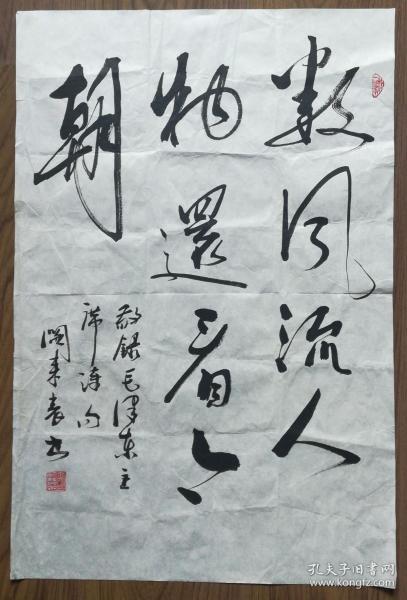 數风流人
物還看今
朝
敬録毛泽东主
席诗句
閻来春书
孔夫子旧书网
www.kongfz.com